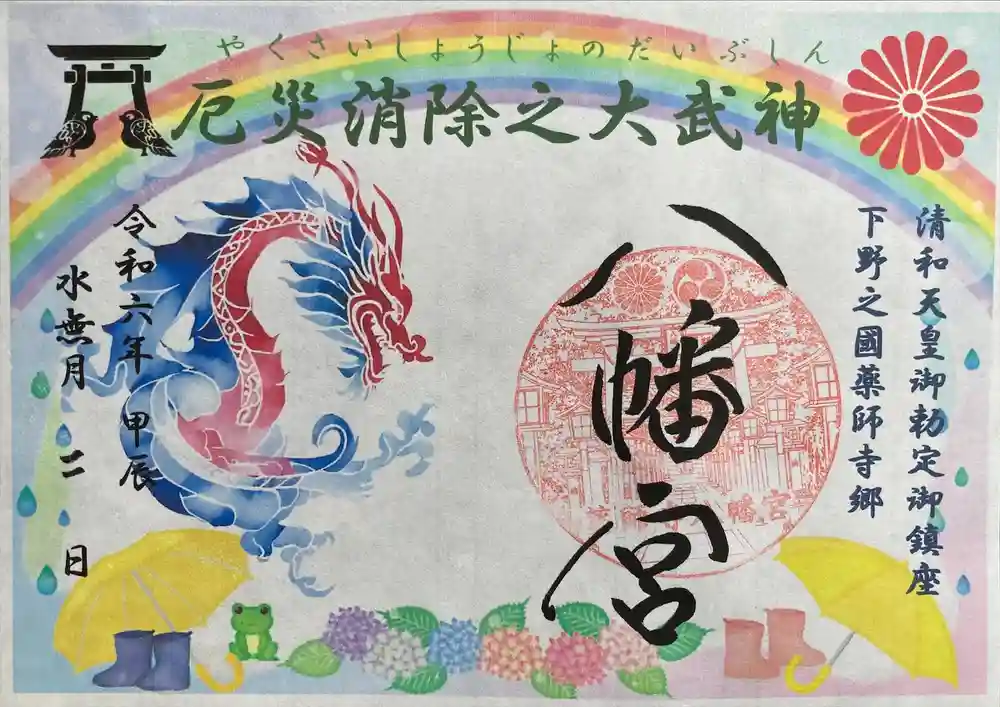 やくさいしょうじょのだいぶしん
厄災消除之大武神
清和天皇御勅定御鎮座
下野之國藥師寺郷
八幡宮
令和六年 甲辰
水無月 二 日